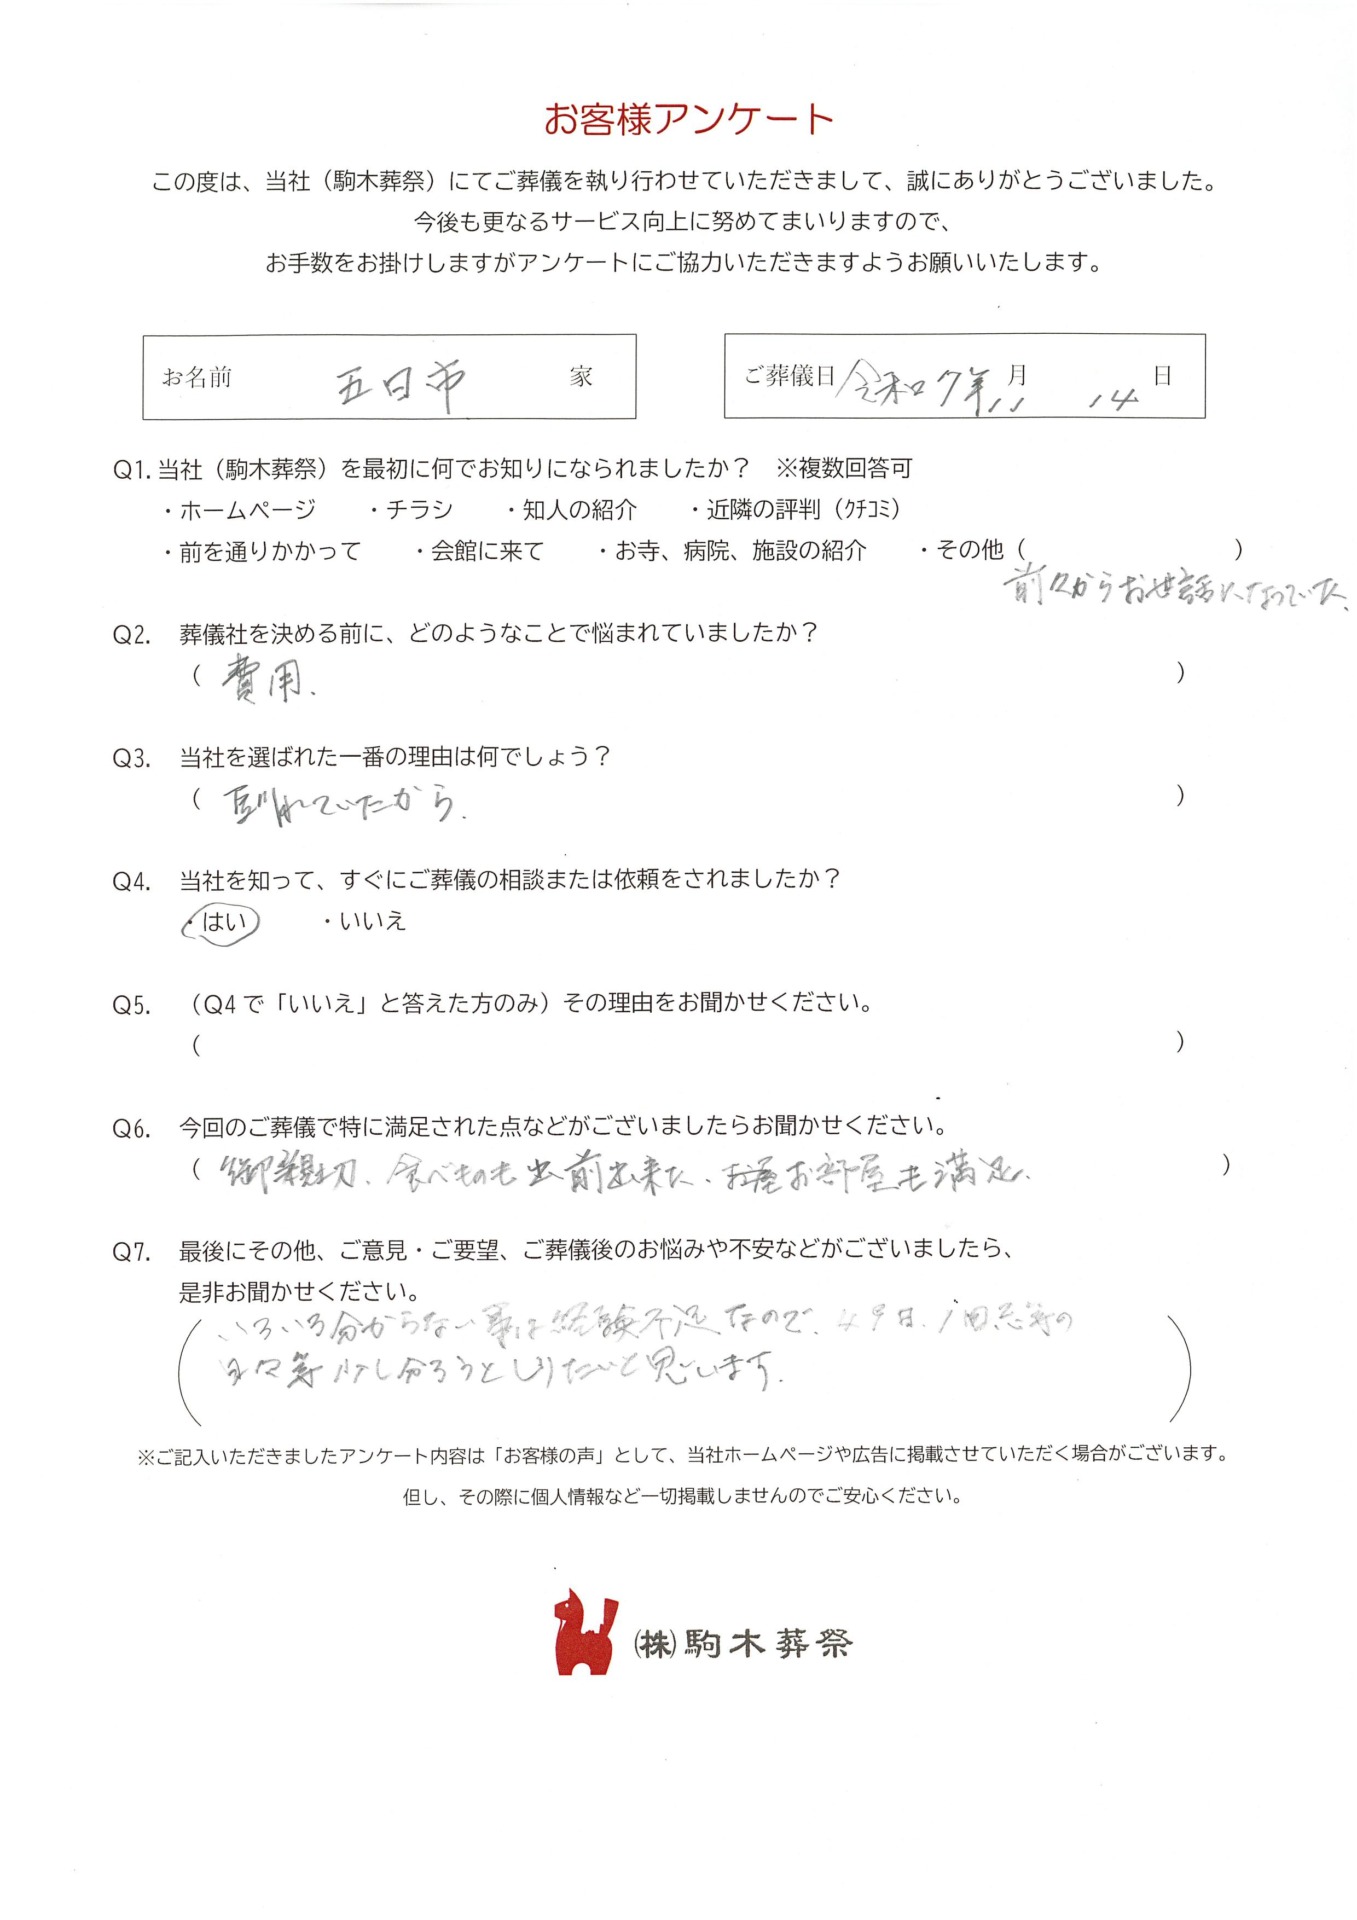 お客様アンケート
この度は、当社（駒木葬祭）にてご葬儀を執り行わせていただきまして、誠にありがとうございました。
今後も更なるサービス向上に努めてまいりますので、
お手数をお掛けしますがアンケートにご協力いただきますようお願いいたします。
お名前 五日市 家
ご葬儀日 令和7年11月14日
Q1. 当社（駒木葬祭）を最初に何でお知りになられましたか？ ※複数回答可
・ホームページ ・チラシ ・知人の紹介 ・近隣の評判（ｸﾁｺﾐ）
・前を通りかかって ・会館に来て ・お寺、病院、施設の紹介 ・その他（ ）
前々からお世話になっていた、
Q2. 葬儀社を決める前に、どのようなことで悩まれていましたか？
（ 費用. ）
Q3. 当社を選ばれた一番の理由は何でしょう？
（ 馴れていたから. ）
Q4. 当社を知って、すぐにご葬儀の相談または依頼をされましたか？
・はい ・いいえ
Q5. （Q4で「いいえ」と答えた方のみ）その理由をお聞かせください。
（ ）
Q6. 今回のご葬儀で特に満足された点などがございましたらお聞かせください。
（ 御親切、食べものも出前出来た、お部屋も満足. ）
Q7. 最後にその他、ご意見・ご要望、ご葬儀後のお悩みや不安などがございましたら、
是非お聞かせください。
いろいろ分からない事は経験不足なので、49日、1周忌等の
等少し分ろうとしりたいと思います.
※ご記入いただきましたアンケート内容は「お客様の声」として、当社ホームページや広告に掲載させていただく場合がございます。
但し、その際に個人情報など一切掲載しませんのでご安心ください。
㈱駒木葬祭